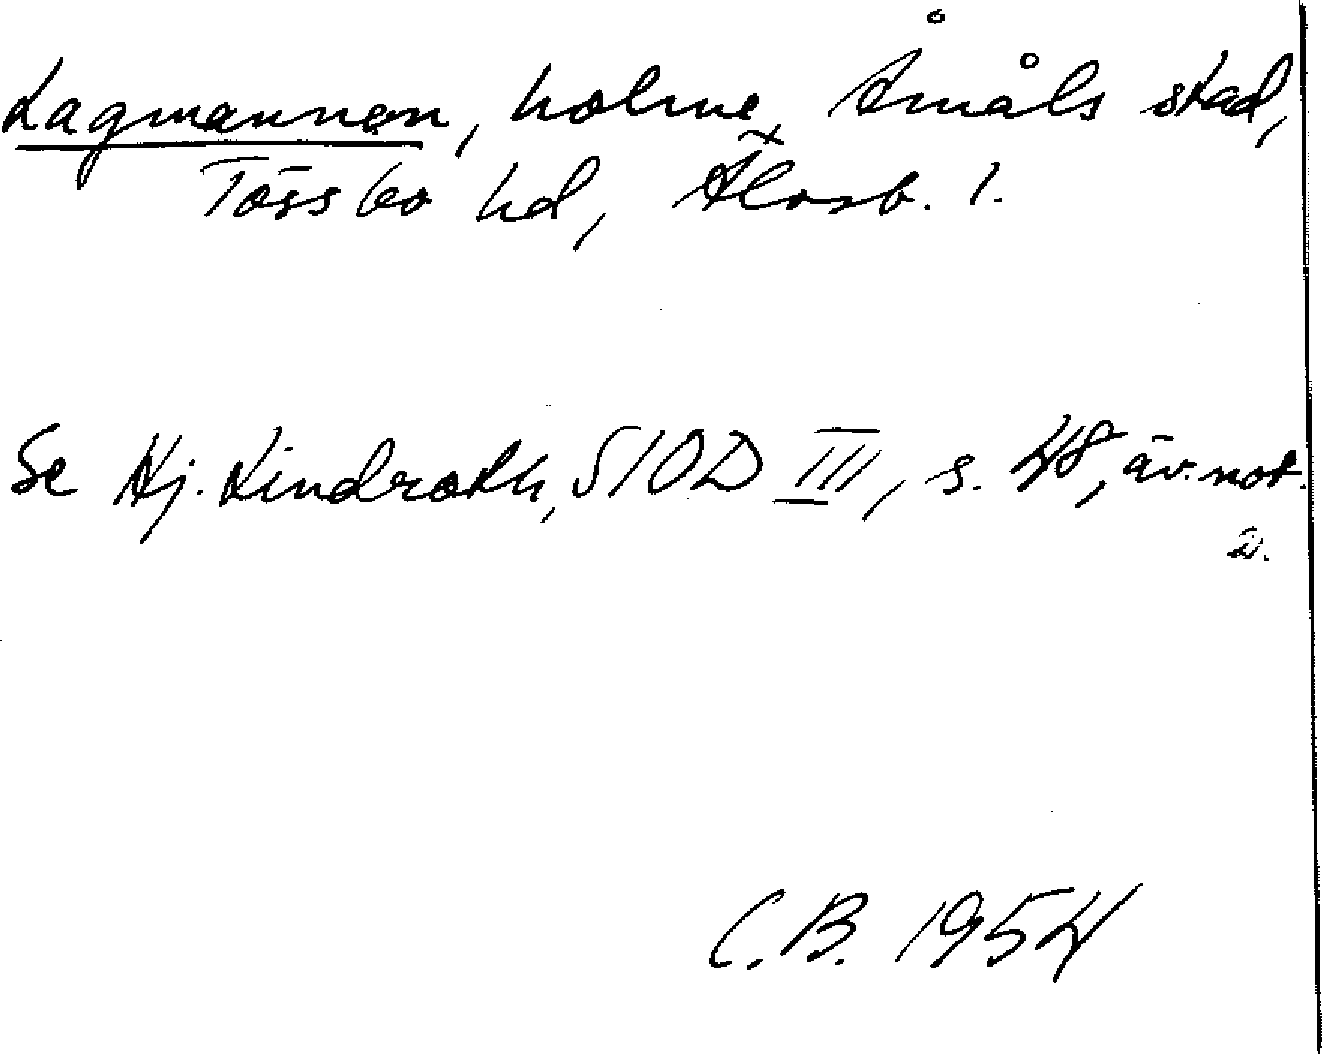 Lagmannen, holme, Åmåls stad,
Tössbo hd, Älvsb. l.
Se Hj. Lindroth, SIOD III, s. 48, äv. not.
2.
C.B. 1954